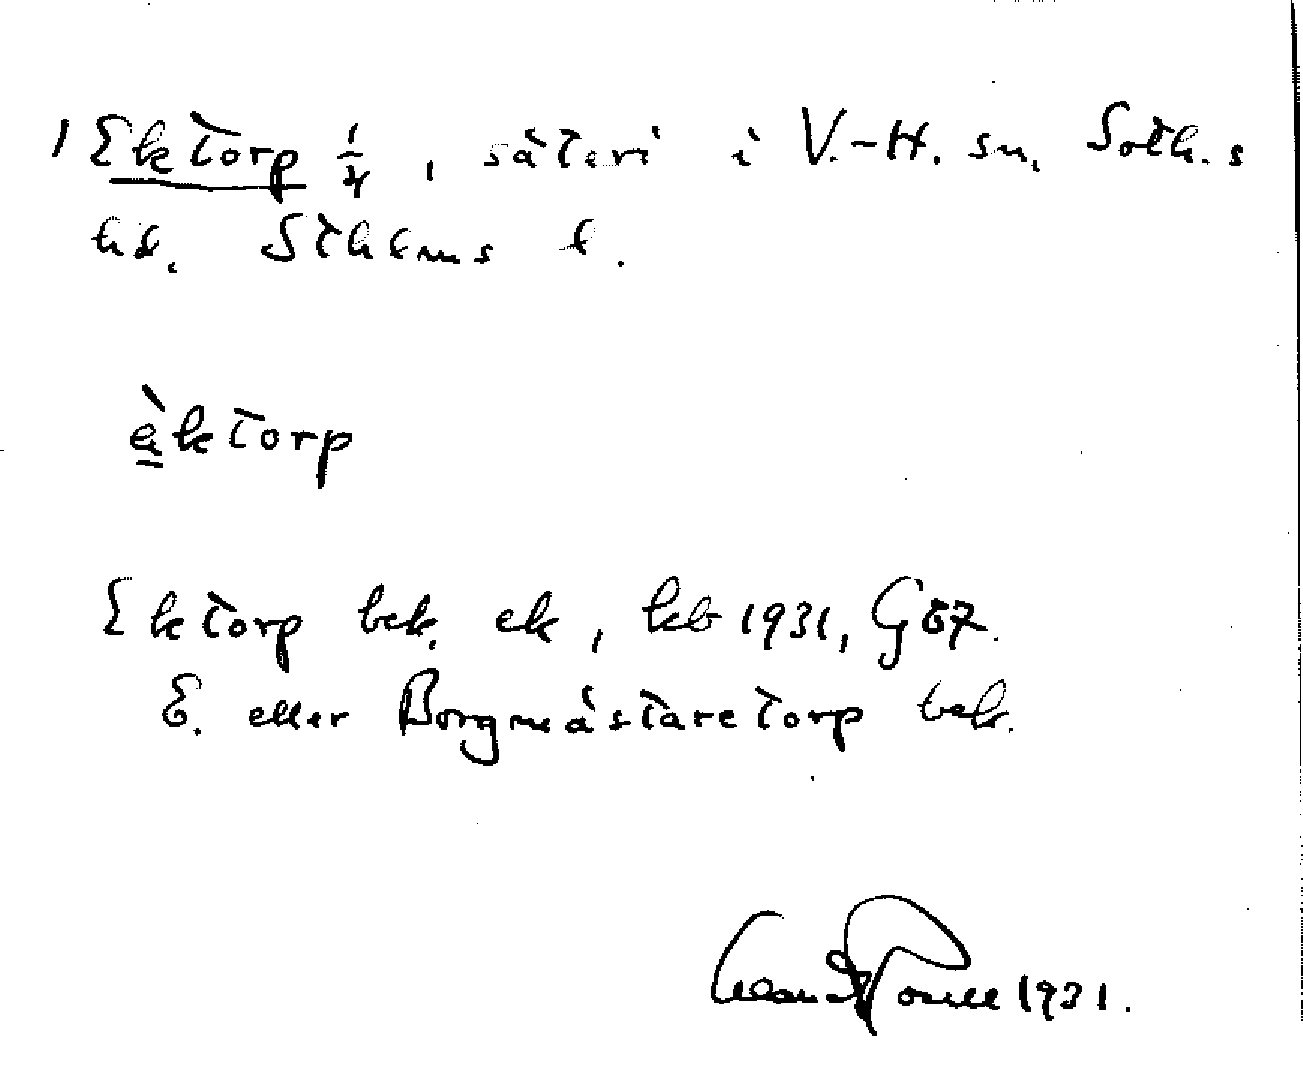 1 Ektorp 1/4, säteri i V.-H. sn, Soth.s
hd. Sthlms l.
è̳ktorp
Ektorp bek. ek, kb 1931, GÖZ.
E. eller Borgmästaretorp bek.
1931.